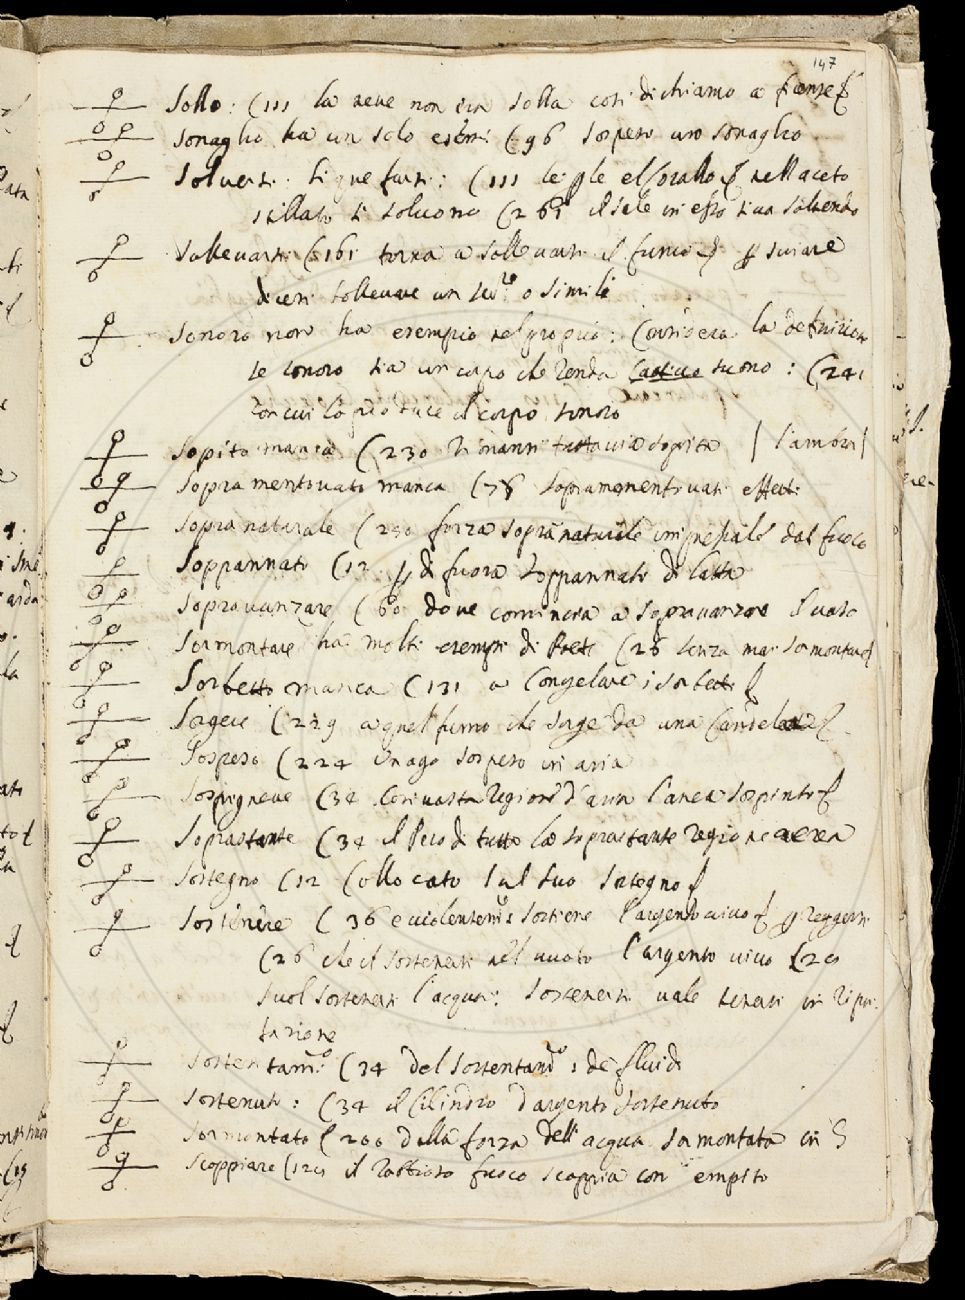 147
Sollo: (111 la neve non era solla così dichiamo a
sonaglio ha un solo esem: (96 sospeso uno sonaglio
Solversi. liquefarsi: (111 le el corallo nell aceto
stillato si solvono (26 il sale in esso si va solvendo
Sollevarsi (161 torna a sollevarsi il fumo
dicesi sollevare un o simili
Sonoro non ha esempio nel proprio: Considera la definizione
se sonoro sia un corpo che renda suono: (241
con cui lo produce il corpo sonoro
Sopito manca (230 rimansi tuttavia sopita | l'ambra |
Sopramentovato manca (78 sopramentovati effetti
Sopranaturale (250 forza sopranaturale dal fuoco
Soppannato (12 p di fuora soppannato di latta
Sopravanzare (60 dove comincia a sopravanzare il vaso
Sormontare ha molti esempi di Poeti (28 senza mai sormontare
Sorbetto manca (131 a congelare i sorbetti
Sorgere (229 a quel fumo che sorge da una candela
Sospeso (224 un ago sospeso in aria
Sospignere (34 vasta regione d'aria l'avea sospinto
Soprastante (34 il Peso di tutto la soprastante regione aerea
Sostegno (12 Collocato sul suo sostegno
Sostenere (36 e violentem: sostiene l'argento vivo p reggersi
(26 che il sostenersi nel vuoto l'argento vivo (29
suol sostenersi l'acqua: sostenersi vale tenersi in ripu-
tazione
Sostentam:o (34 del sostentam:o i de fluidi
Sostenuto: (34 il Cilindro d'argento sostenuto
Sormontato (200 dalla forza dell' acqua sormontata in
Scoppiare (129 il racchiuso fuoco scoppia con empito